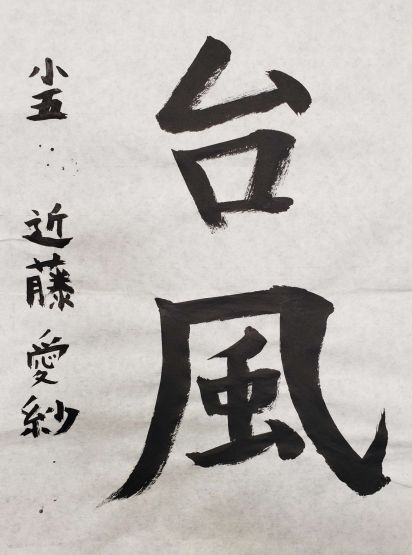 台風
小五 近藤愛紗